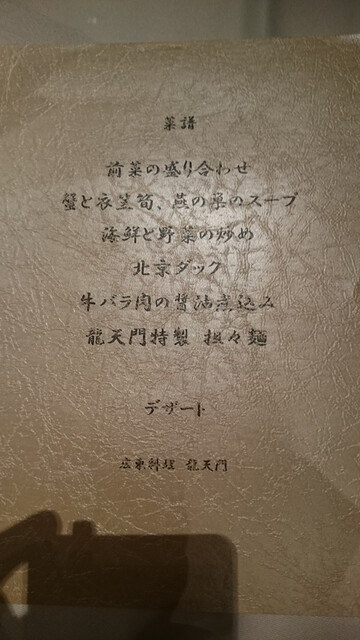 菜譜
前菜の盛り合わせ
蟹と衣笠筍、燕の巣のスープ
海鮮と野菜の炒め
北京ダック
牛バラ肉の醤油煮込み
龍天門特製 担々麺
デザート
広東料理 龍天門